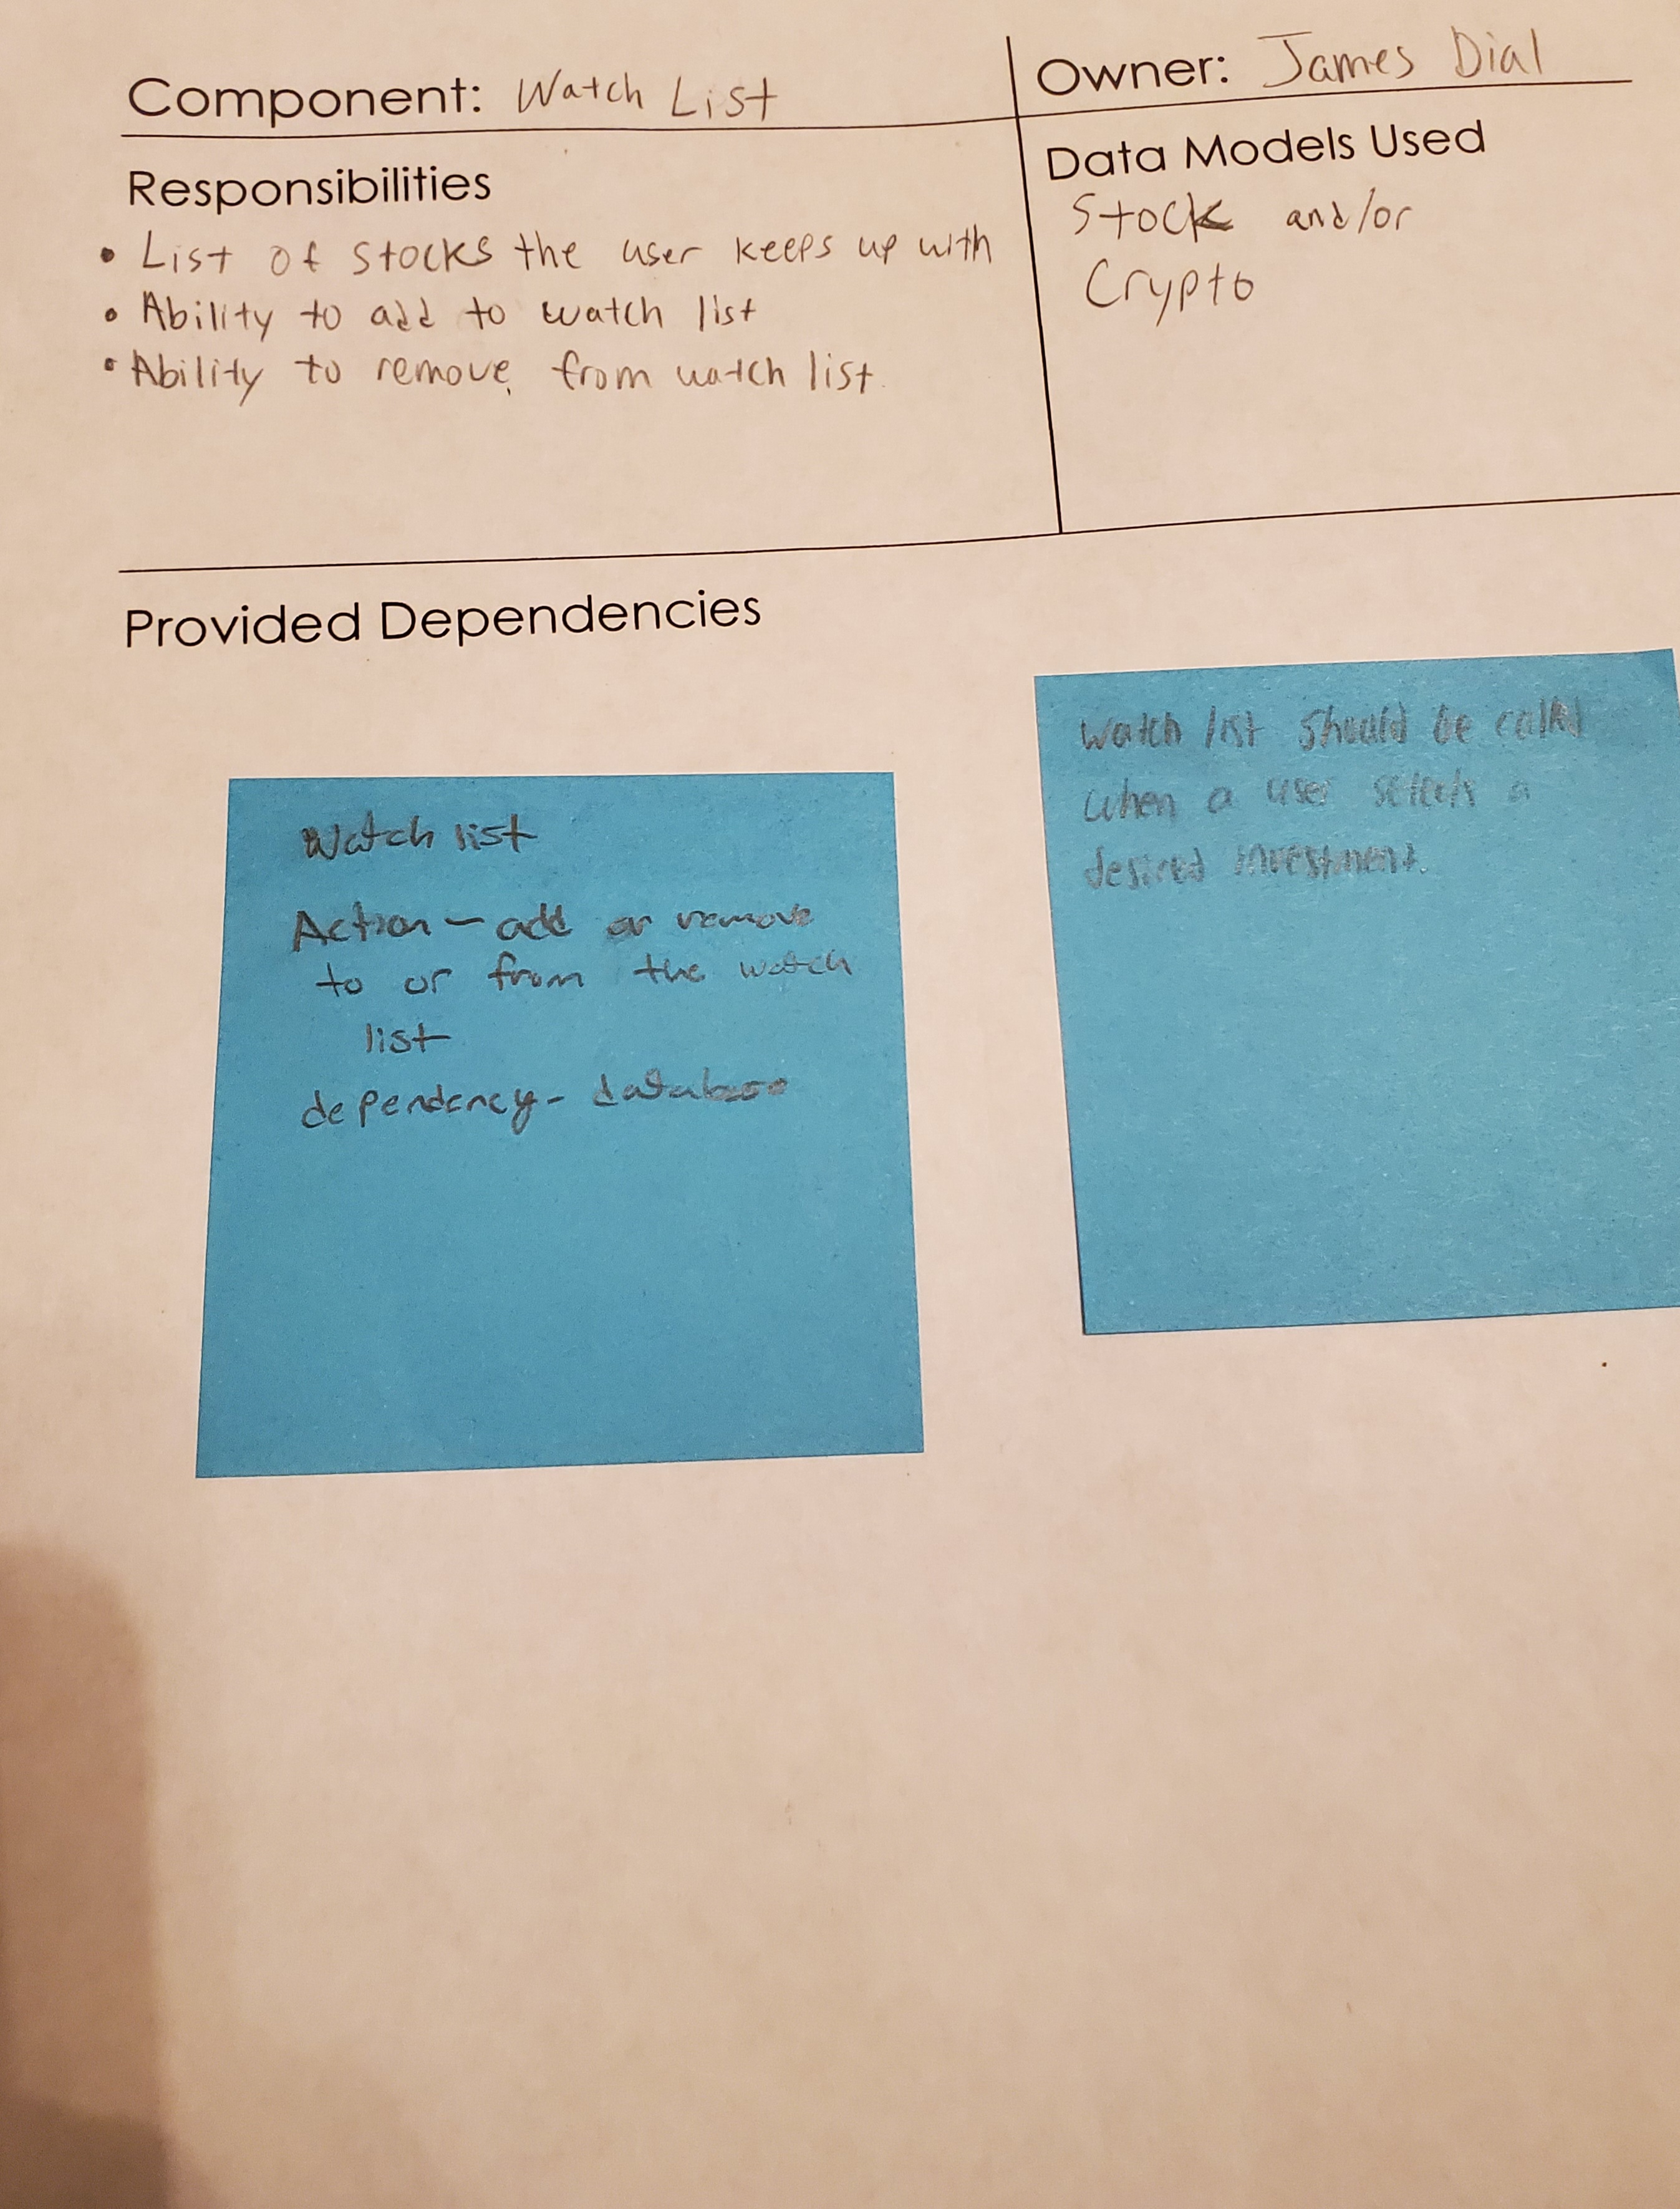 Component: Watch List
Owner: James Dial
Responsibilities
• List of stocks the user keeps up with
• Ability to add to watch list
• Ability to remove from watch list
Data Models Used
Stock and/or
Crypto
Provided Dependencies
Watch list
Action - add or remove
to or from the watch
list
dependency - database
Watch list should be called
when a user selects a
desired investment.